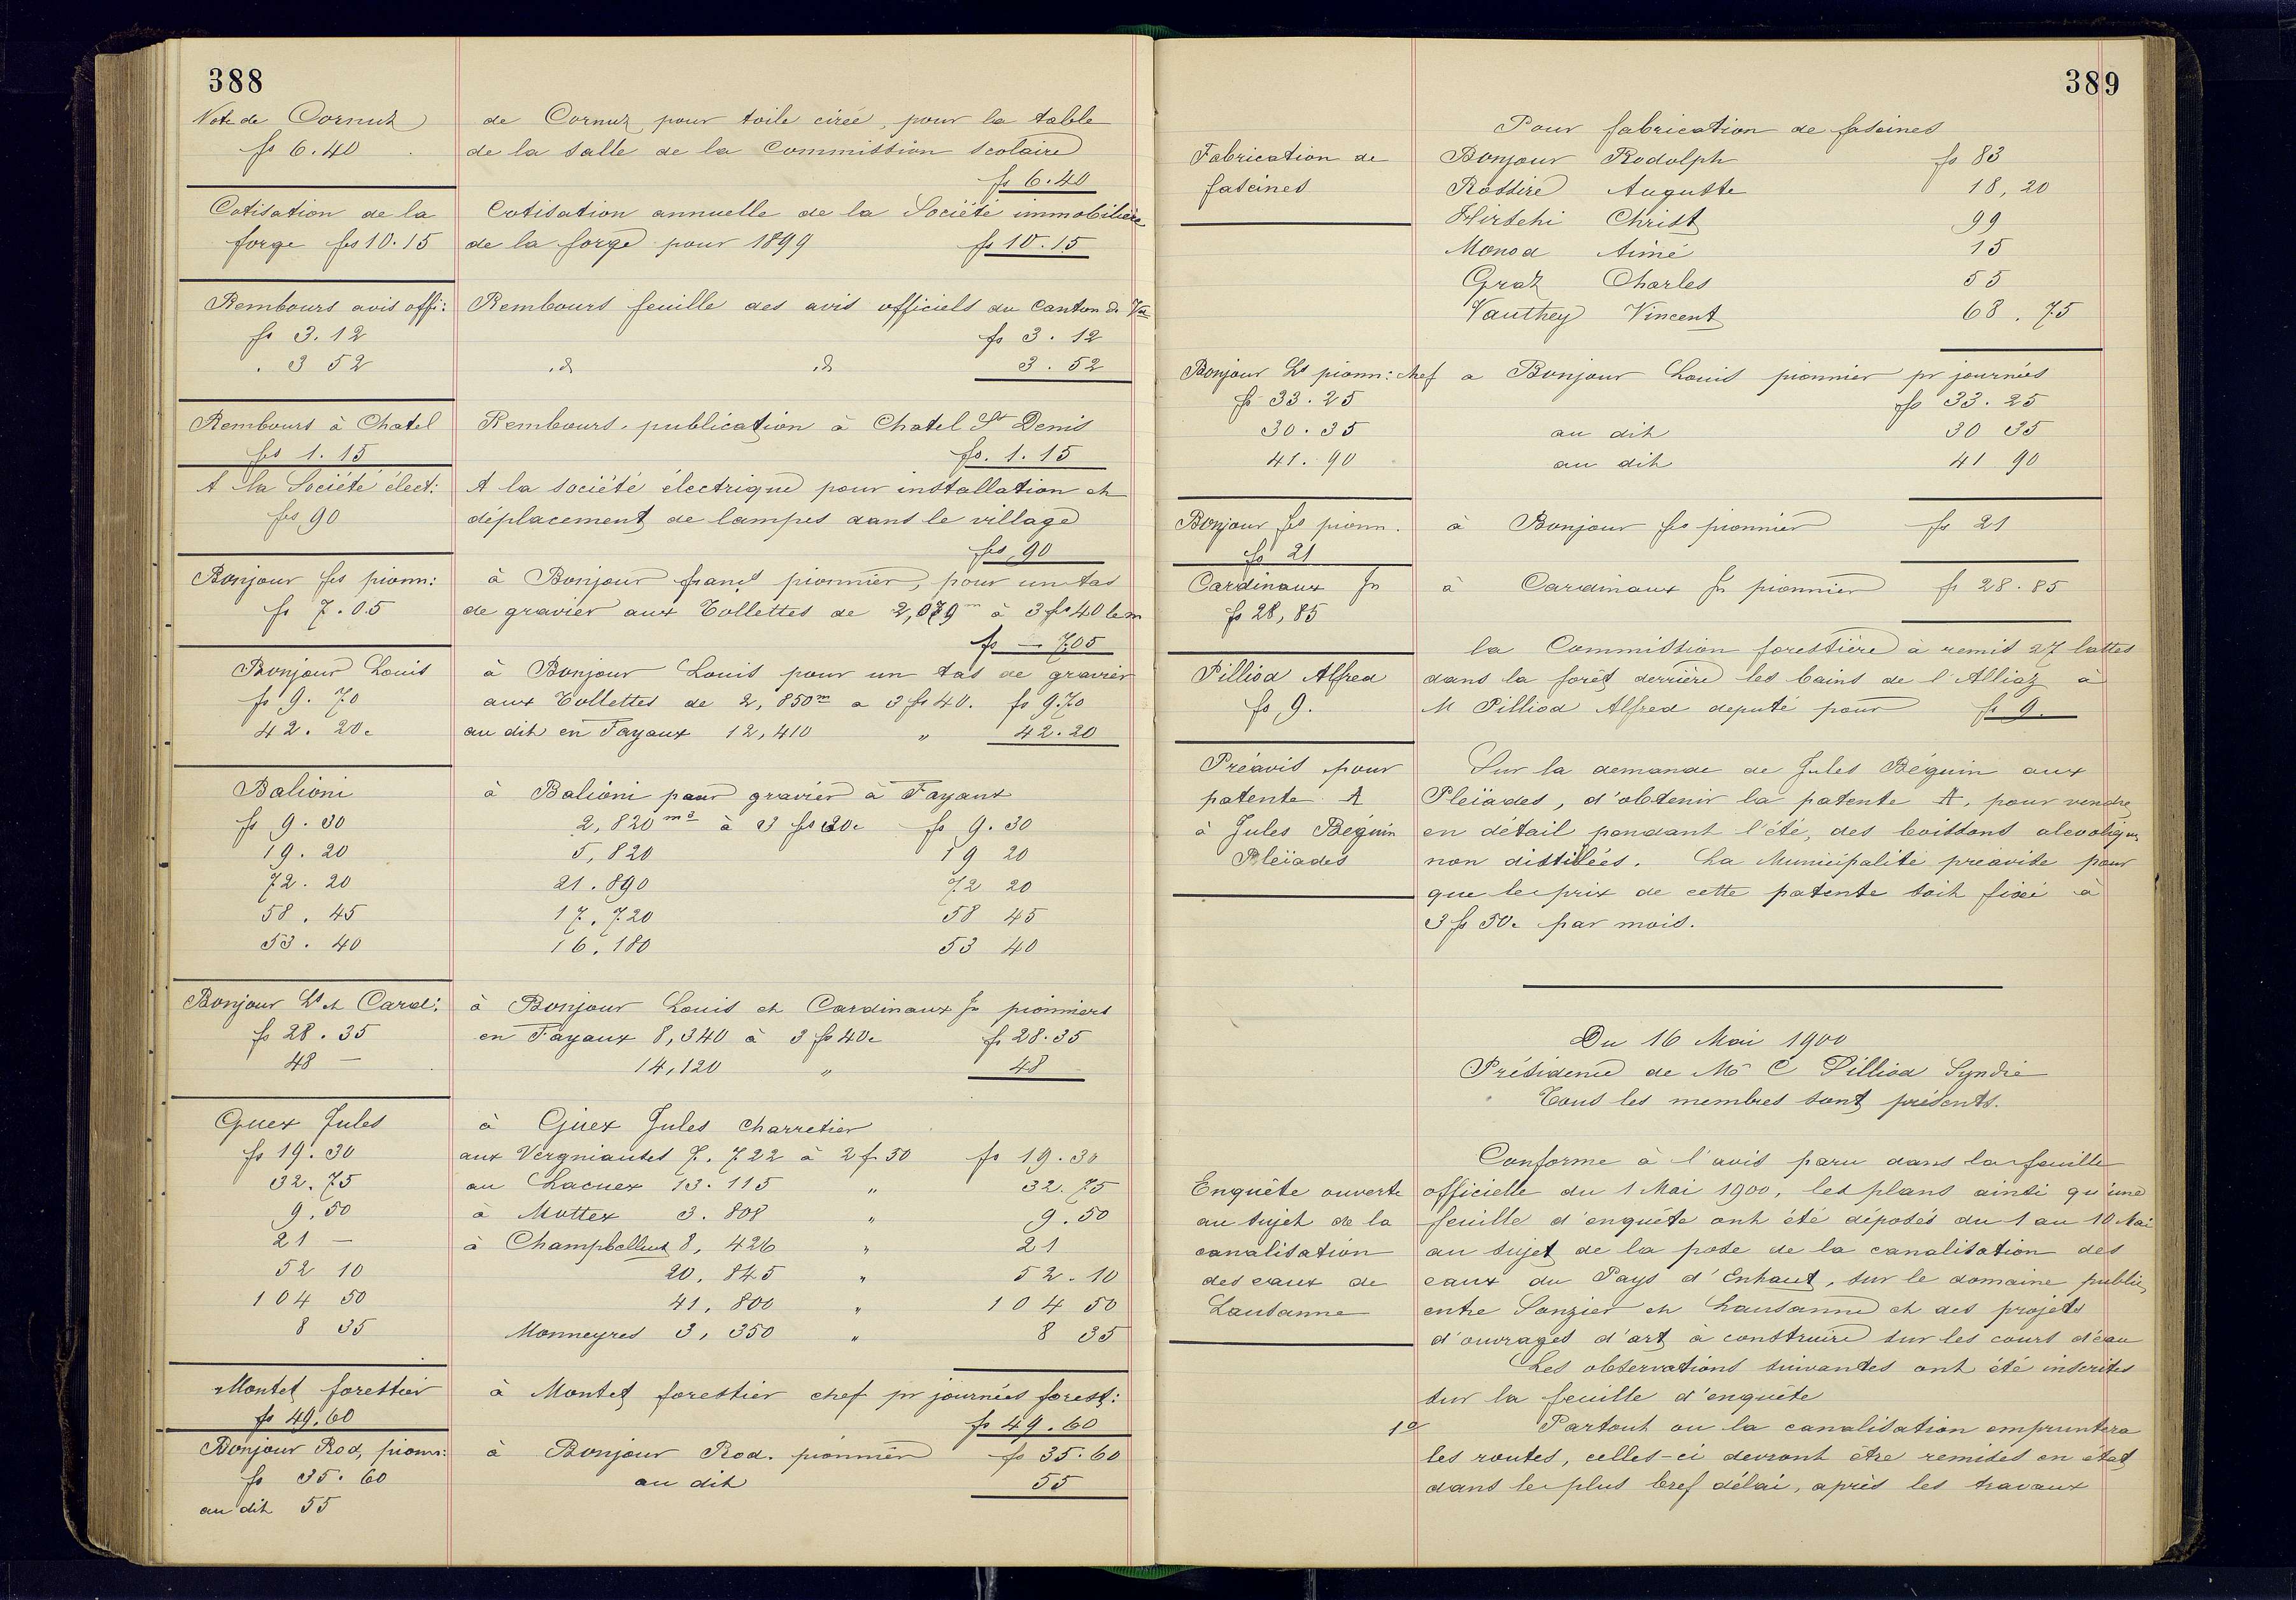 388
Note de Cornuz
fs 6.40
de Cornuz pour toile cirée, pour la table
de la salle de la Commission scolaire
fs 6.40
Cotisation de la
forge fcs 10.15
Cotisation annuelle de la Société immobilière
de la forge pour 1899 fs 10.15
Rembours avis offi:
fs 3.12
. 3 52
Rembours feuille des avis officiels du Canton de Vd
fs 3.12
id id 3.52
Rembours à Chatel
fcs 1.15
Rembours. publication à Chatel St Denis
fs. 1.15
A la Société élect:
fcs 90
A la société électrique pour installation et
déplacement de lampes dans le village
fcs, 90
Bonjour fçs pionn:
fs 7.05
à Bonjour franç pionnier, pour un tas
de gravier aux Tollettes de 2,079m à 3 fs 40 le m
fs — 7,05
Bonjour Louis
fs 9.70
42.20c
à Bonjour Louis pour un tas de gravier
aux Tollettes de 2,850m a 3 fs 40. fs 9.70
au dit en Fayaux 12,410 " 42.20
Balioni
fs 9.30
19.20
72.20
58.45
53.40
à Balioni pour gravier à Fayaux
2,820 m3 à 3 fs 30c fs 9.30
5,820 19 20
21.890 72 20
17.720 58 45
16.180 53 40
Bonjour Ls et Card:
fs 28.35
48 —
à Bonjour Louis et Cardinaux Jn pionniers
en Fayaux 8,340 à 3 fs 40c fs 28.35
14,120 " 48
Guex Jules
fs 19.30
32.75
9.50
21 —
52 10
104 50
8 35
à Guex Jules charretier
aux Vergniautes 7.722 à 2 f 50 fs 19.30
au Lacuex 13.115 " 32.75
à Mottex 3.808 " 9.50
à Champbellus 8,426 " 21
20.845 " 52.10
41,800 " 104 50
Monneyres 3,350 " 8 35
Montet forestier
fs 49.60
à Montet forestier chef pr journées forest:
fs 49.60
Bonjour Rod, pionn:
fs 35.60
au dit 55
à Bonjour Rod. pionnier fs 35.60
au dit 55
389
Pour fabrication de fascines
Fabrication de
fascines
Bonjour Rodolph fs 83
Rossire Auguste 18,20
Hirschi Christ 99
Monod Aimé 15
Graz Charles 55
Vauthey Vincent 68.75
Bonjour Ls pionn: chef
fs 33.25
30.35
41.90
a Bonjour Louis pionnier pr journées
fs 33.25
au dit 30 35
au dit 41 90
Bonjour fçs pionn.
fs 21
à Bonjour fçs pionnier fs 21
Cardinaux Jn
fs 28,85
à Cardinaux Jn pionnier fs 28.85
Pilliod Alfred
fs 9.
la Commission forestière à remis 27 lattes
dans la forêt derrière les bains de l'Alliaz à
M Pilliod Alfred deputé pour fs 9.
Préavis pour
patente A
à Jules Béguin
Pleïades
Sur la demande de Jules Béguin aux
Pleïades, d'obtenir la patente A, pour vendre
en détail pendant l'été, des boissons alcooliques
non distillées. La Municipalité preavise pour
que le prix de cette patente soit fixé à
3 fs 50c par mois.
Du 16 Mai 1900
Présidence de Mr C Pilliod Syndic
Tous les membres sont présents.
Enquête ouverte
au sujet de la
canalisation
des eaux de
Lausanne
Conforme à l'avis paru dans la feuille
officielle du 1 Mai 1900, les plans ainsi qu'une
feuille d'enquête ont été déposés du 1 au 10 Mai
au sujet de la pose de la canalisation des
eaux du Pays d'Enhaut, sur le domaine public,
entre Sonzier et Lausanne et des projets
d'ouvrages d'art à construire sur les cours d'eau
Les observations suivantes ont été inscrites
sur la feuille d'enquête
1o Partout ou la canalisation empruntera
les routes, celles-ci devront être remises en état
dans le plus bref délai, après les travaux